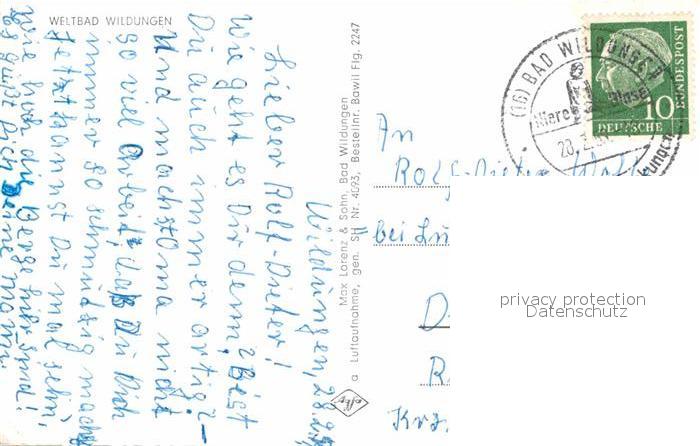 WELTBAD WILDUNGEN
Wildungen, 28.2.
Lieber Rolf-Dieter!
Wie geht es Dir denn? Bist
Du auch immer artig? -
Und machst Oma nicht
so viel Arbeit, daß Du Dich
immer so schmutzig machst
Jetzt kannst Du mal sehn,
wie hoch die Berge hier sind!
Es grüßt Dich Deine Mama.
Max Lorenz & Sohn, Bad Wildungen
a Luftaufnahme, gen. SH Nr. 4093, Bestellnr. Bawil Flg. 2247
(16) BAD WILDUNGEN
Niere Blase
DEUTSCHE BUNDESPOST
10
An
Rolf-Dieter
bei
Krs.
privacy protection
Datenschutz